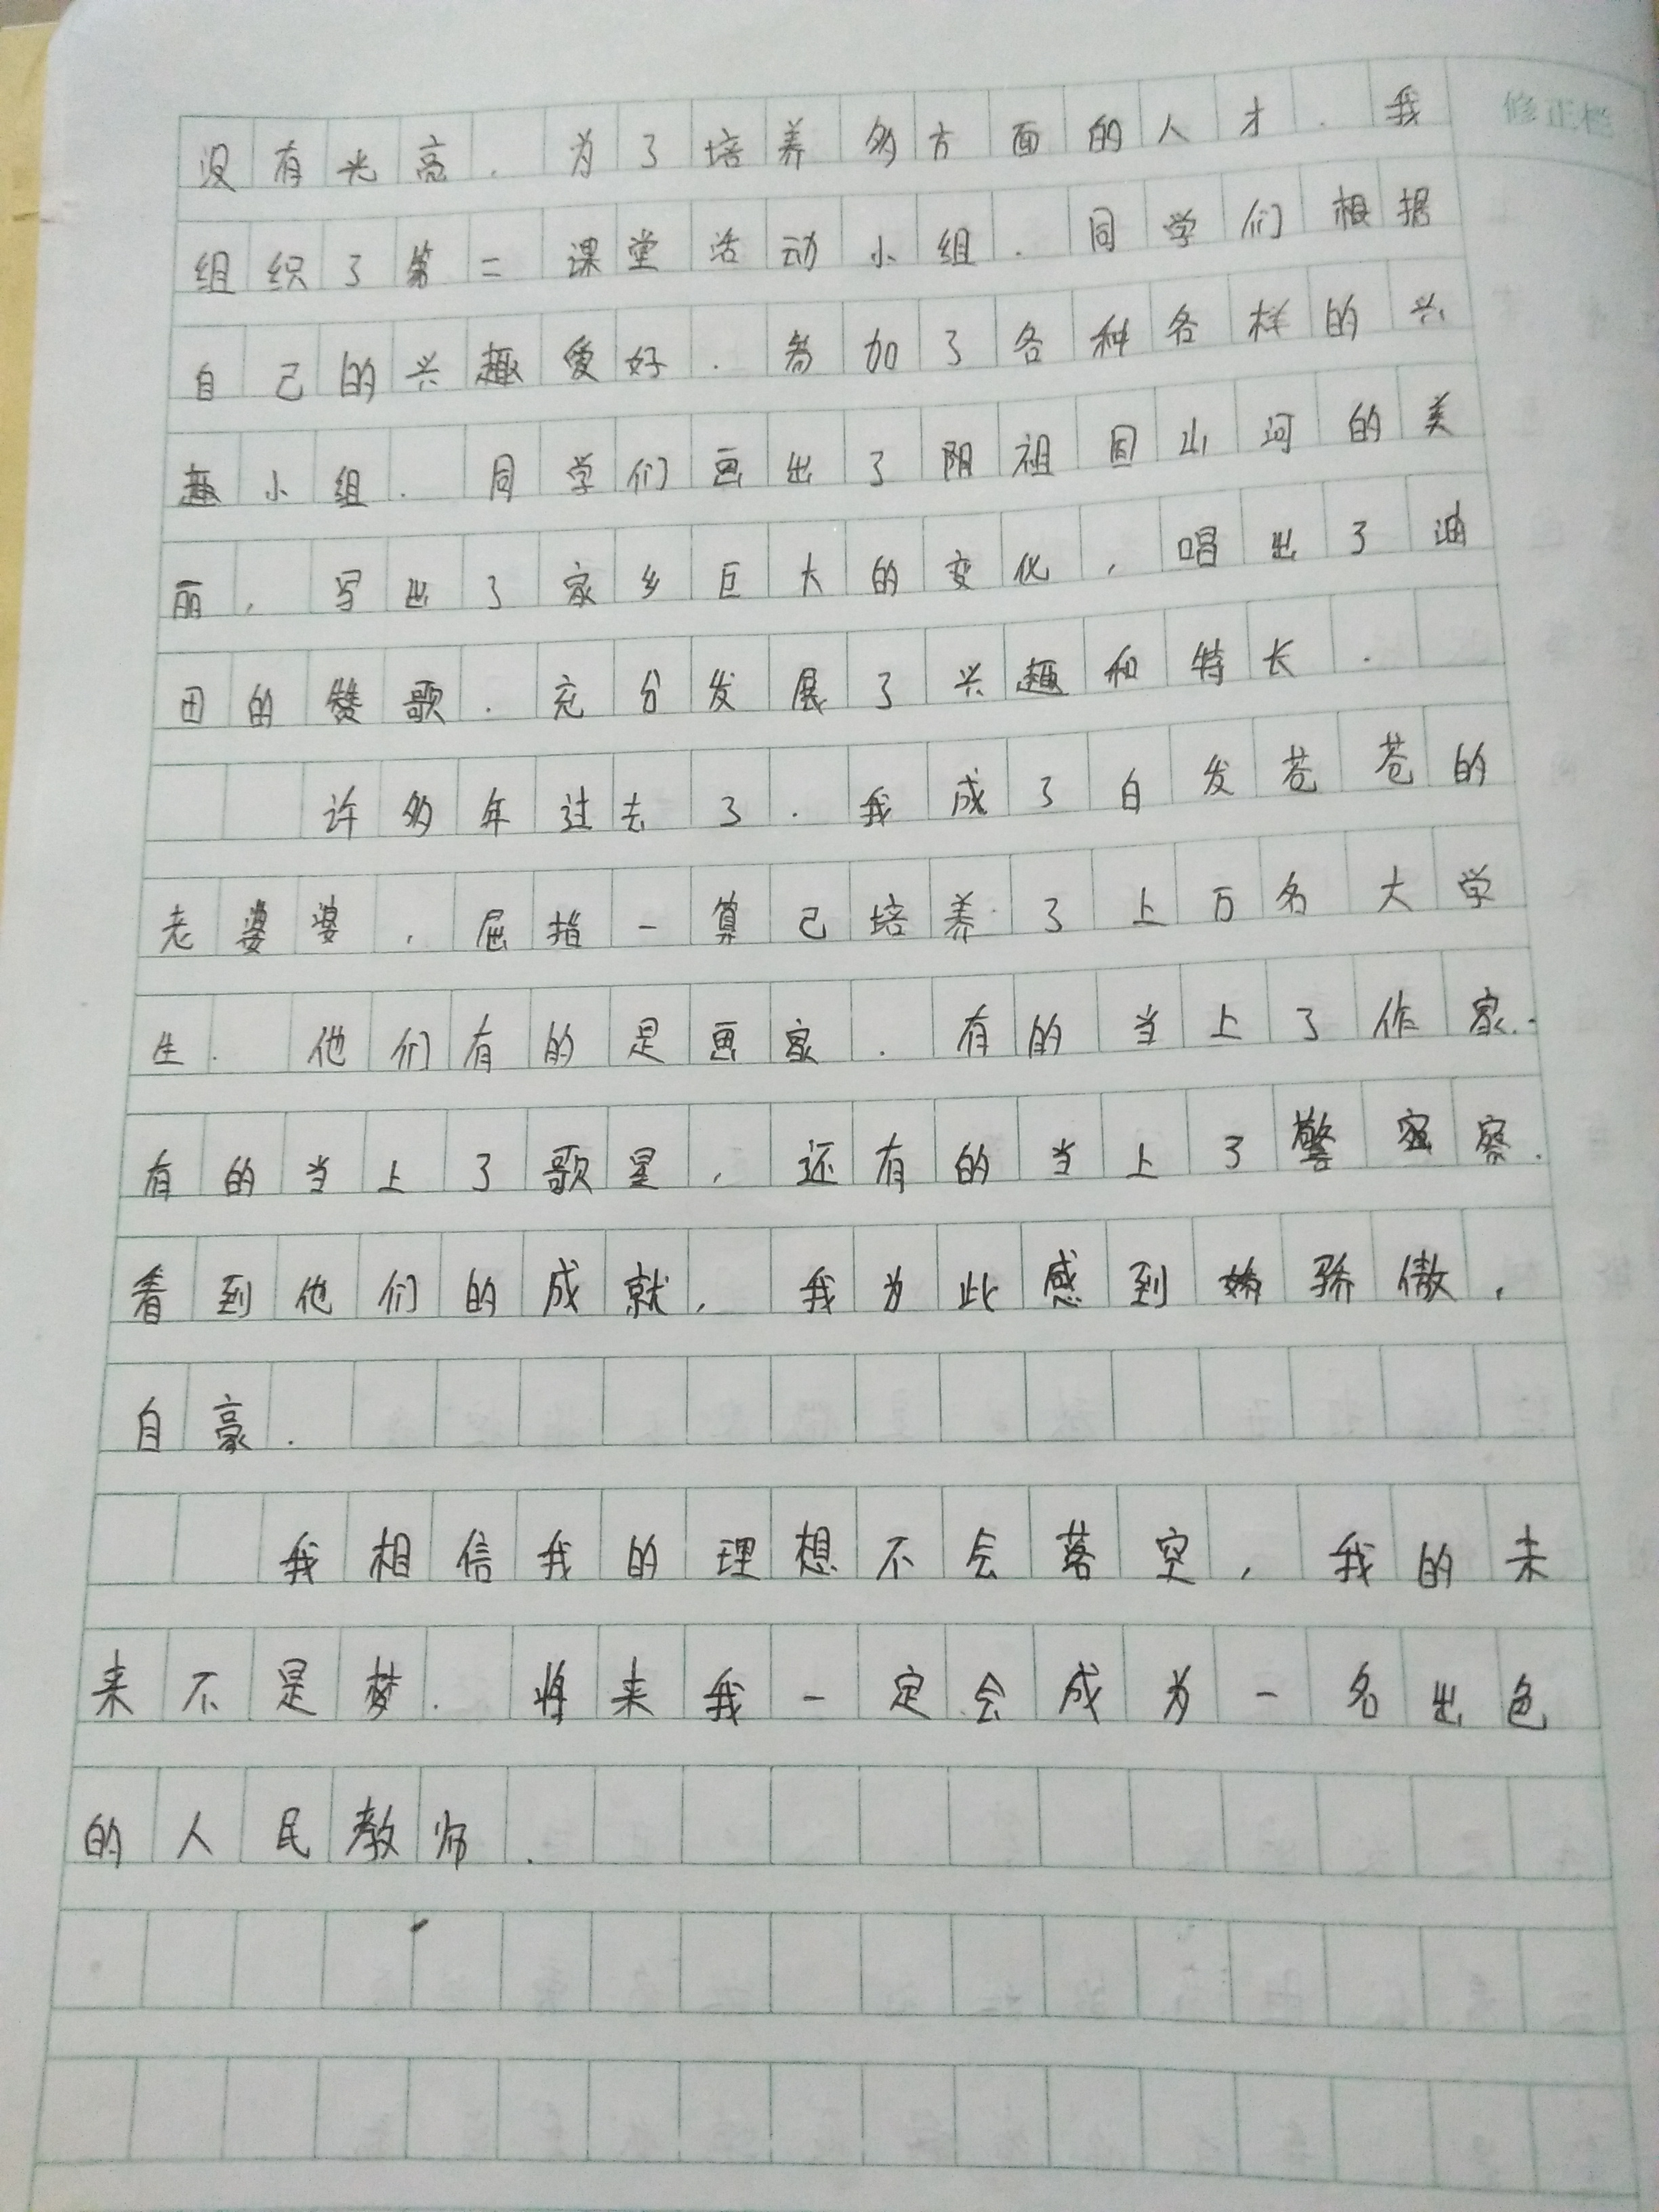 修正栏
没有光亮.为了培养多方面的人才.我
组织了第二课堂活动小组.同学们根据
自己的兴趣爱好.参加了各种各样的兴
趣小组.同学们画出了阴祖国山河的美
丽,写出了家乡巨大的变化,唱出了油
田的赞歌.充分发展了兴趣和特长.
许多年过去了.我成了白发苍苍的
老婆婆,屈指一算己培养了上万名大学
生.他们有的是画家.有的当上了作家.
有的当上了歌星,还有的当上了警察.
看到他们的成就,我为此感到骄傲,
自豪.
我相信我的理想不会落空,我的未
来不是梦.将来我一定会成为一名出色
的人民教师.